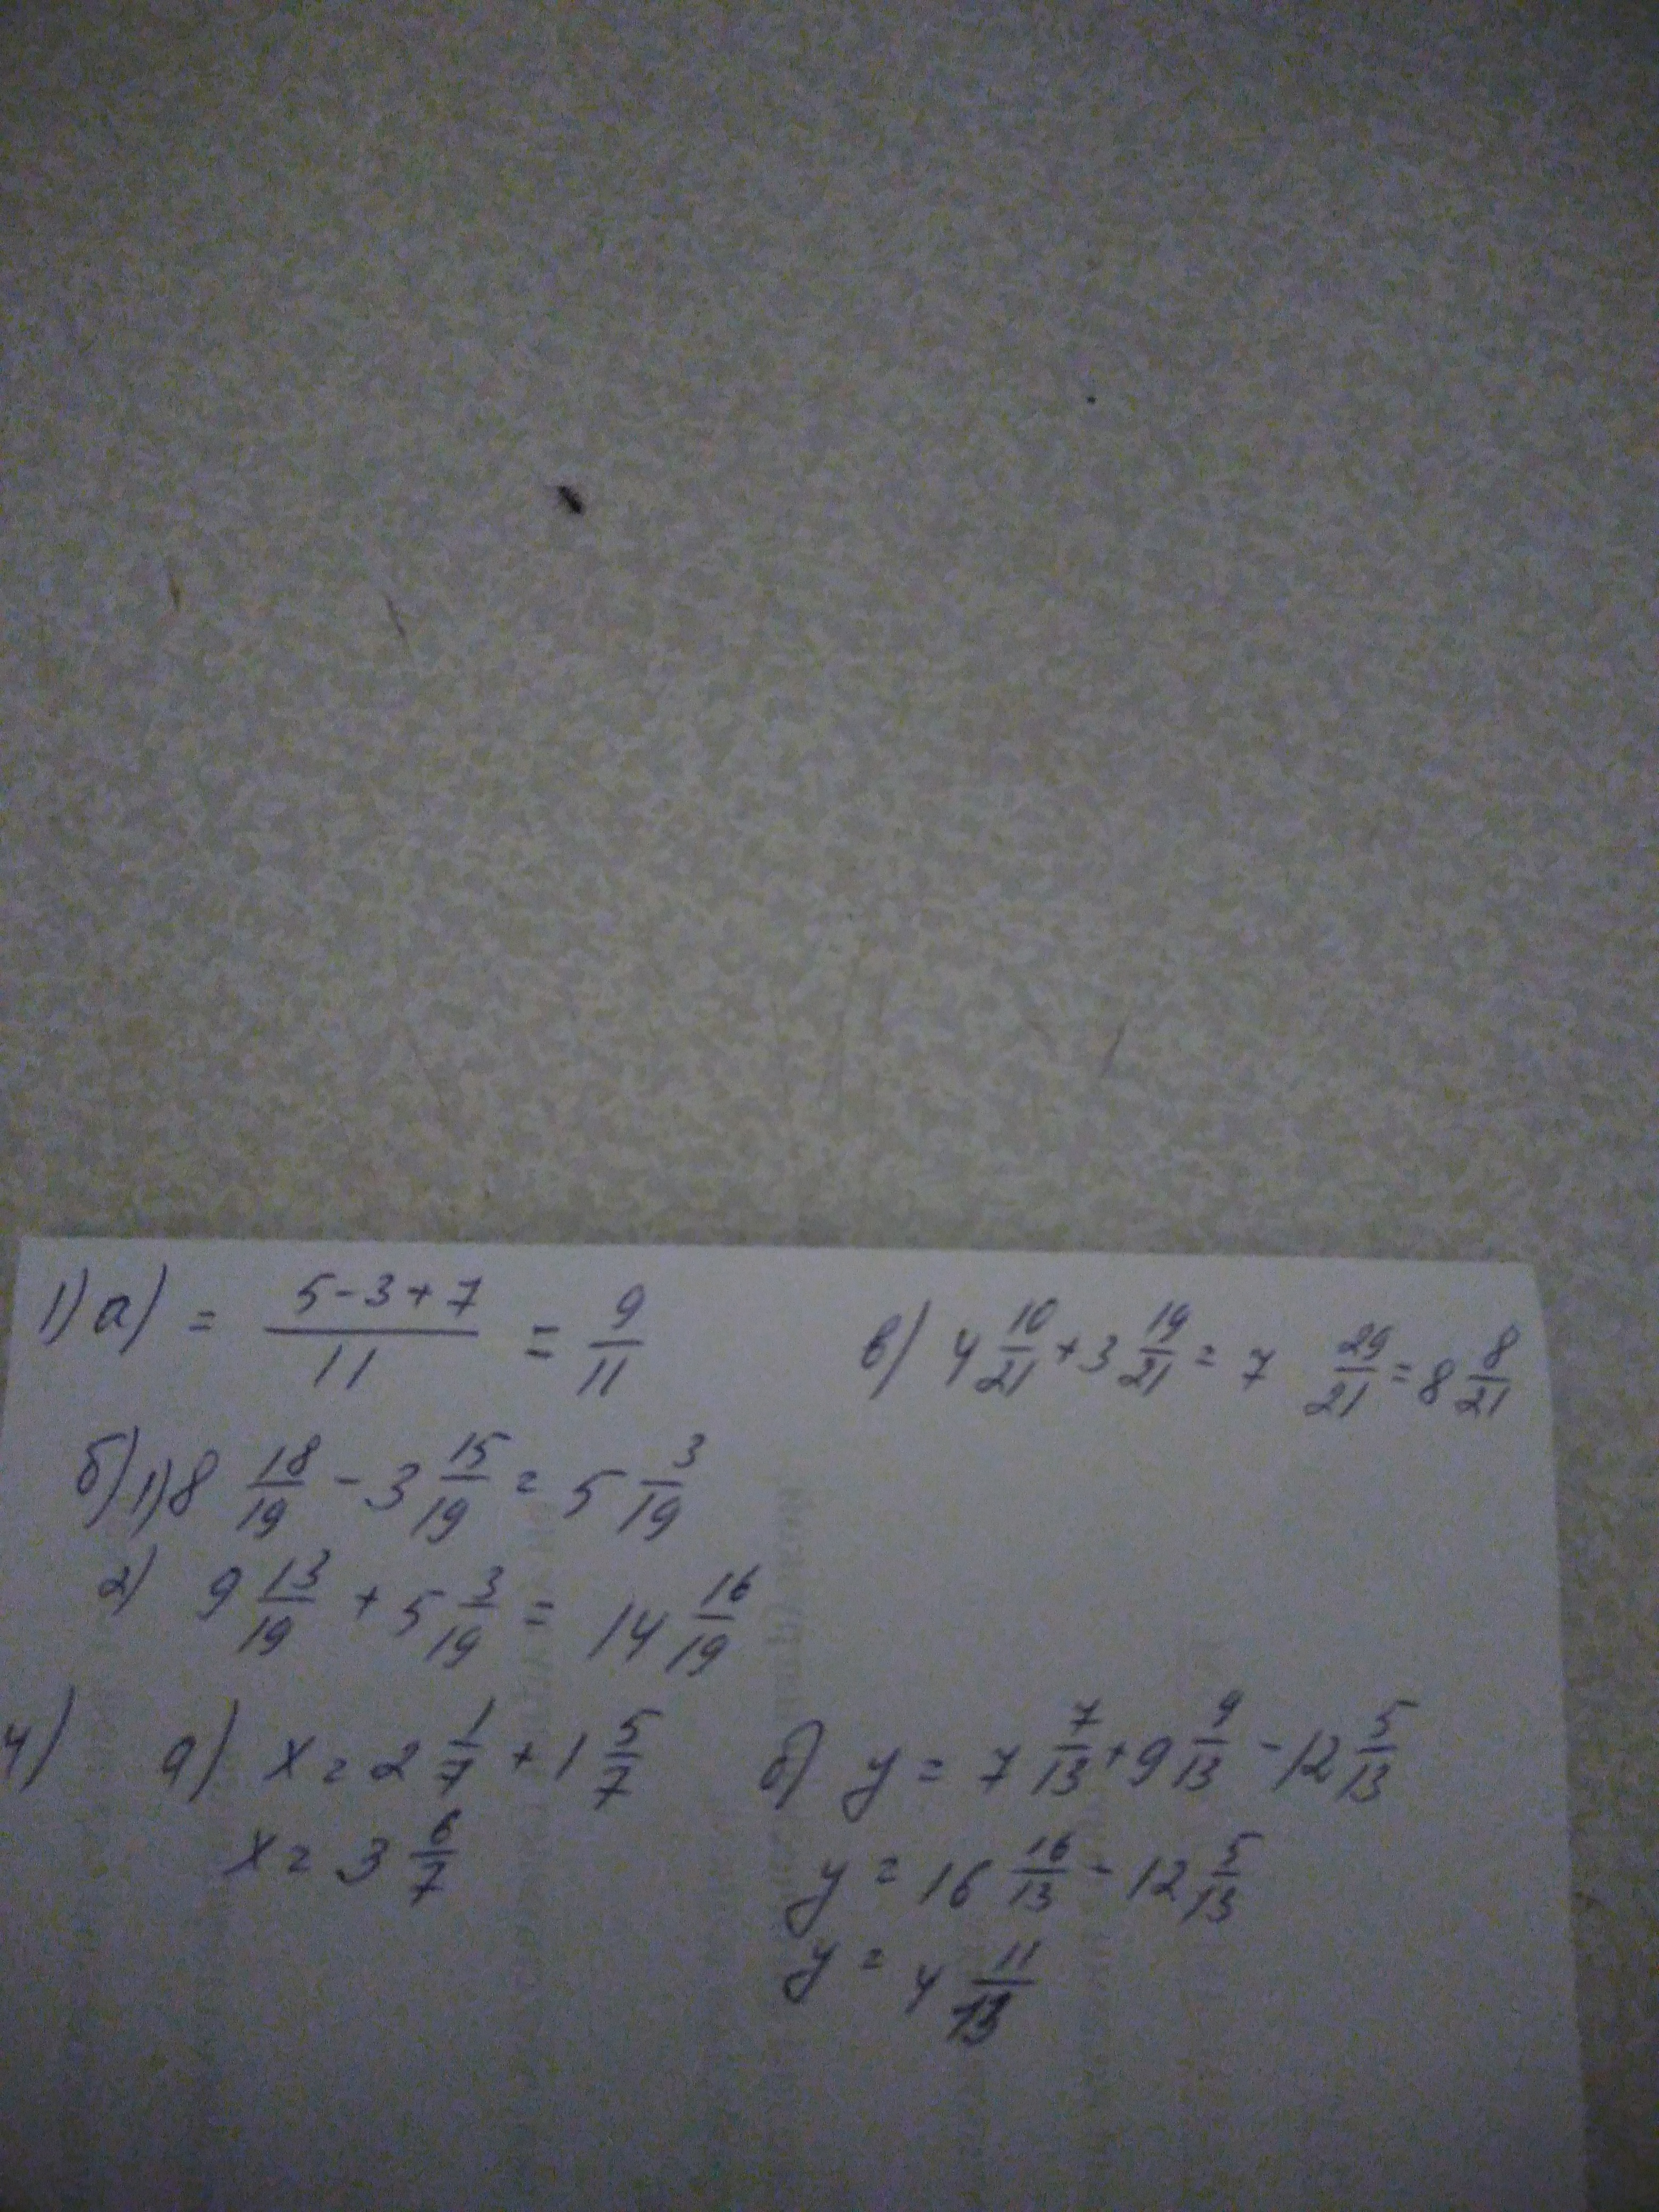 1) а) = (5-3+7)/11 = 9/11
в) 4 10/21 + 3 19/21 = 7 29/21 = 8 8/21
б) 1) 8 18/19 - 3 15/19 = 5 3/19
2) 9 13/19 + 5 3/19 = 14 16/19
4) а) x = 2 1/7 + 1 5/7
x = 3 6/7
б) y = 7 7/13 + 9 9/13 - 12 5/13
y = 16 16/13 - 12 5/13
y = 4 11/13